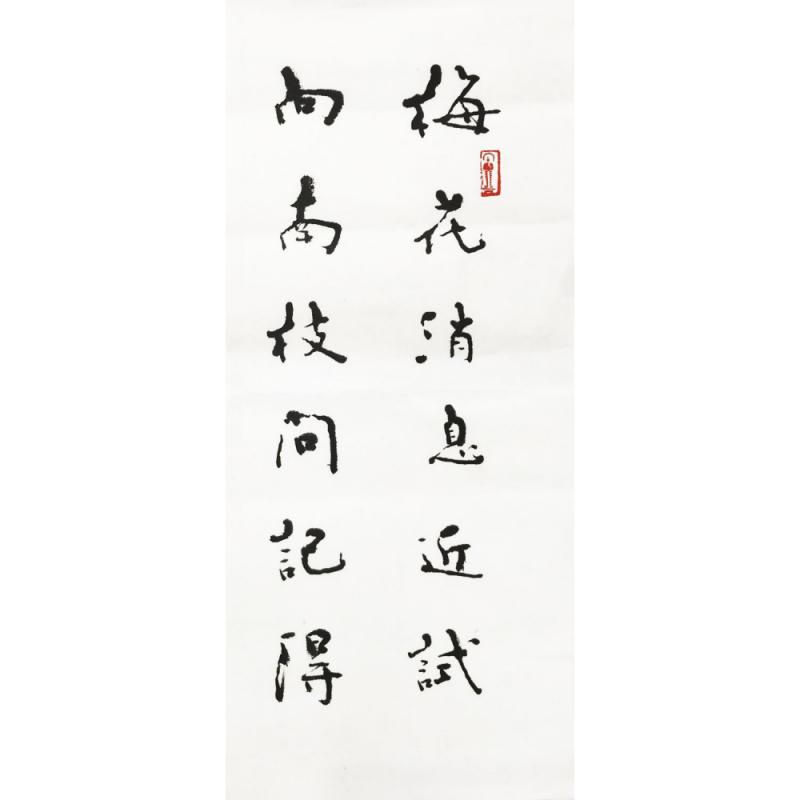 梅花消息近試
向南枝問記得